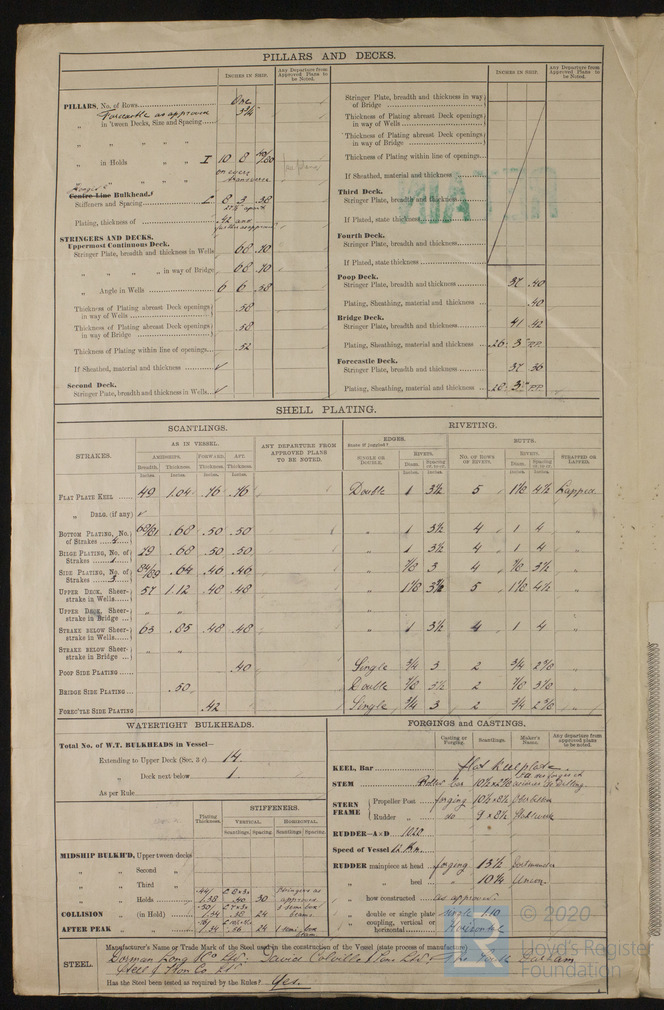 PILLARS AND DECKS.
INCHES IN SHIP.
Any Departure from Approved Plans to be Noted.
PILLARS, No. of Rows One
Forecastle as approved
„ in 'tween Decks, Size and Spacing 3¾"
„ „ „ „
„ in Holds „ I 10 8
„ „ „ on every transverse
Centre Line Bulkhead.
Stiffeners and Spacing L 8 3 .38
Plating, thickness of .42 and
STRINGERS AND DECKS.
Uppermost Continuous Deck.
Stringer Plate, breadth and thickness in Wells 68 .70
„ „ „ „ in way of Bridge 68 .70
„ Angle in Wells 6 6 .58
Thickness of Plating abreast Deck openings in way of Wells .58
Thickness of Plating abreast Deck openings in way of Bridge .58
Thickness of Plating within line of openings .52
If Sheathed, material and thickness ✓
Second Deck.
Stringer Plate, breadth and thickness in Wells ✓
INCHES IN SHIP.
Any Departure from Approved Plans to be Noted.
Stringer Plate, breadth and thickness in way of Bridge
Thickness of Plating abreast Deck openings in way of Wells
Thickness of Plating abreast Deck openings in way of Bridge
Thickness of Plating within line of openings
If Sheathed, material and thickness
Third Deck.
Stringer Plate, breadth and thickness
If Plated, state thickness
Fourth Deck.
Stringer Plate, breadth and thickness
If Plated, state thickness
Poop Deck.
Stringer Plate, breadth and thickness 37 .40
Plating, Sheathing, material and thickness .40
Bridge Deck.
Stringer Plate, breadth and thickness 41 .42
Plating, Sheathing, material and thickness .26 3" P.P.
Forecastle Deck.
Stringer Plate, breadth and thickness 37 36
Plating, Sheathing, material and thickness 3" P.P.
RETAIN
SHELL PLATING.
SCANTLINGS.
RIVETING.
STRAKES.
AS IN VESSEL.
AMIDSHIPS. FORWARD. AFT.
Breadth. Thickness. Thickness. Thickness.
Inches Inches. Inches. Inches.
ANY DEPARTURE FROM APPROVED PLANS TO BE NOTED.
EDGES.
SINGLE OR DOUBLE.
RIVETS.
Diam. Spacing
NO. OF ROWS OF RIVETS.
BUTTS.
RIVETS.
Diam. Spacing
STRAPPED OR LAPPED.
FLAT PLATE KEEL 49 1.04 .76 .76 Double 1 3½ 5 1⅛ 4½ Lapped
„ DBLG. (if any) ✓
BOTTOM PLATING, No. of Strakes .68 .50 .50 „ 1 3½ 4 1 4 „
BILGE PLATING, No. of Strakes 1 29 .68 .50 .50 „ 1 3½ 4 1 4 „
SIDE PLATING, No. of Strakes 3 84/89 .64 .46 .46 „ ⅞ 3 4 ⅞ 3½ „
UPPER DECK, Sheerstrake in Wells 57 1.12 .48 .48 „ 1⅛ 5 1⅛ 4½ „
UPPER DECK, Sheerstrake in Bridge „ „
STRAKE BELOW SHEERstrake in Wells 63 .85 .48 .48 „ 1 3½ 4 1 4 „
STRAKE BELOW SHEERstrake in Bridge „ „
POOP SIDE PLATING .40 Single ¾ 3 2 ¾ 2⅝ „
BRIDGE SIDE PLATING .50 Double ⅞ 3½ 2 ⅞ 3⅛ „
FOREC'TLE SIDE PLATING .42 Single ¾ 3 2 ¾ 2⅝ „
WATERTIGHT BULKHEADS.
Total No. of W.T. BULKHEADS in Vessel—
Extending to Upper Deck (Sec. 3 c) 14
„ Deck next below 1
As per Rule
Plating Thickness.
STIFFENERS.
VERTICAL. HORIZONTAL.
Scantlings. Spacing. Scantlings Spacing
MIDSHIP BULKH'D, Upper tween decks
„ „ Second „
„ „ Third „
„ „ Holds .40 30 Stringers as approved
COLLISION „ (in Hold) 24
AFTER PEAK „ „ 24
FORGINGS and CASTINGS.
Casting or Forging.
Scantlings.
Maker's Name.
Any departure from approved plans to be noted.
KEEL, Bar flat keel plate.
STEM
STERN FRAME { Propeller Post forging
Rudder „ do
RUDDER—A×D 1020
Speed of Vessel 12 Kn.
RUDDER mainpiece at head forging 13½ Dortmunder
„ „ heel „ 10¼ Union.
„ how constructed as approved.
„ double or single plate single 1.10
„ coupling, vertical or horizontal Horizontal
© 2020
Lloyd's Register
Foundation
STEEL.
Manufacturer's Name or Trade Mark of the Steel used in the construction of the vessel (state process of manufacture)
Dorman Long & Co Ltd. David Colville & Sons Ltd. The South Durham
Steel & Iron Co. Ltd.
Has the Steel been tested as required by the Rules? Yes.